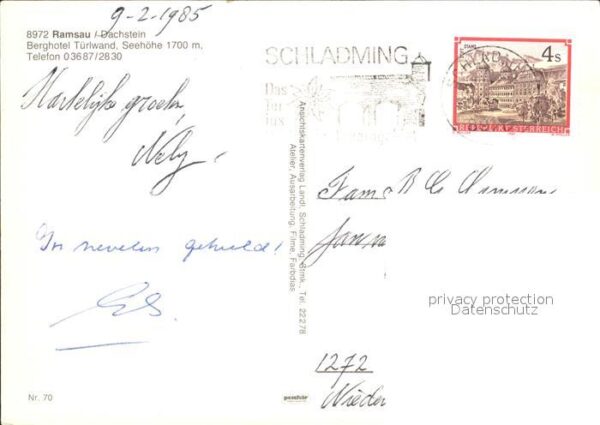 9-2-1985
8972 Ramsau / Dachstein
Berghotel Türlwand, Seehöhe 1700 m,
Telefon 03687/2830
Hartelijke groeten,
Nely,
In nevelen gehuld!
Nr. 70
Ansichtskartenverlag Landl, Schladming, Stmk., Tel. 22278
Atelier, Ausarbeitung, Filme, Farbdias
SCHLADMING
Das
STAMS
4s
REPUBLIK ÖSTERREICH
Fam B C
privacy protection
Datenschutz
1272
Nieder